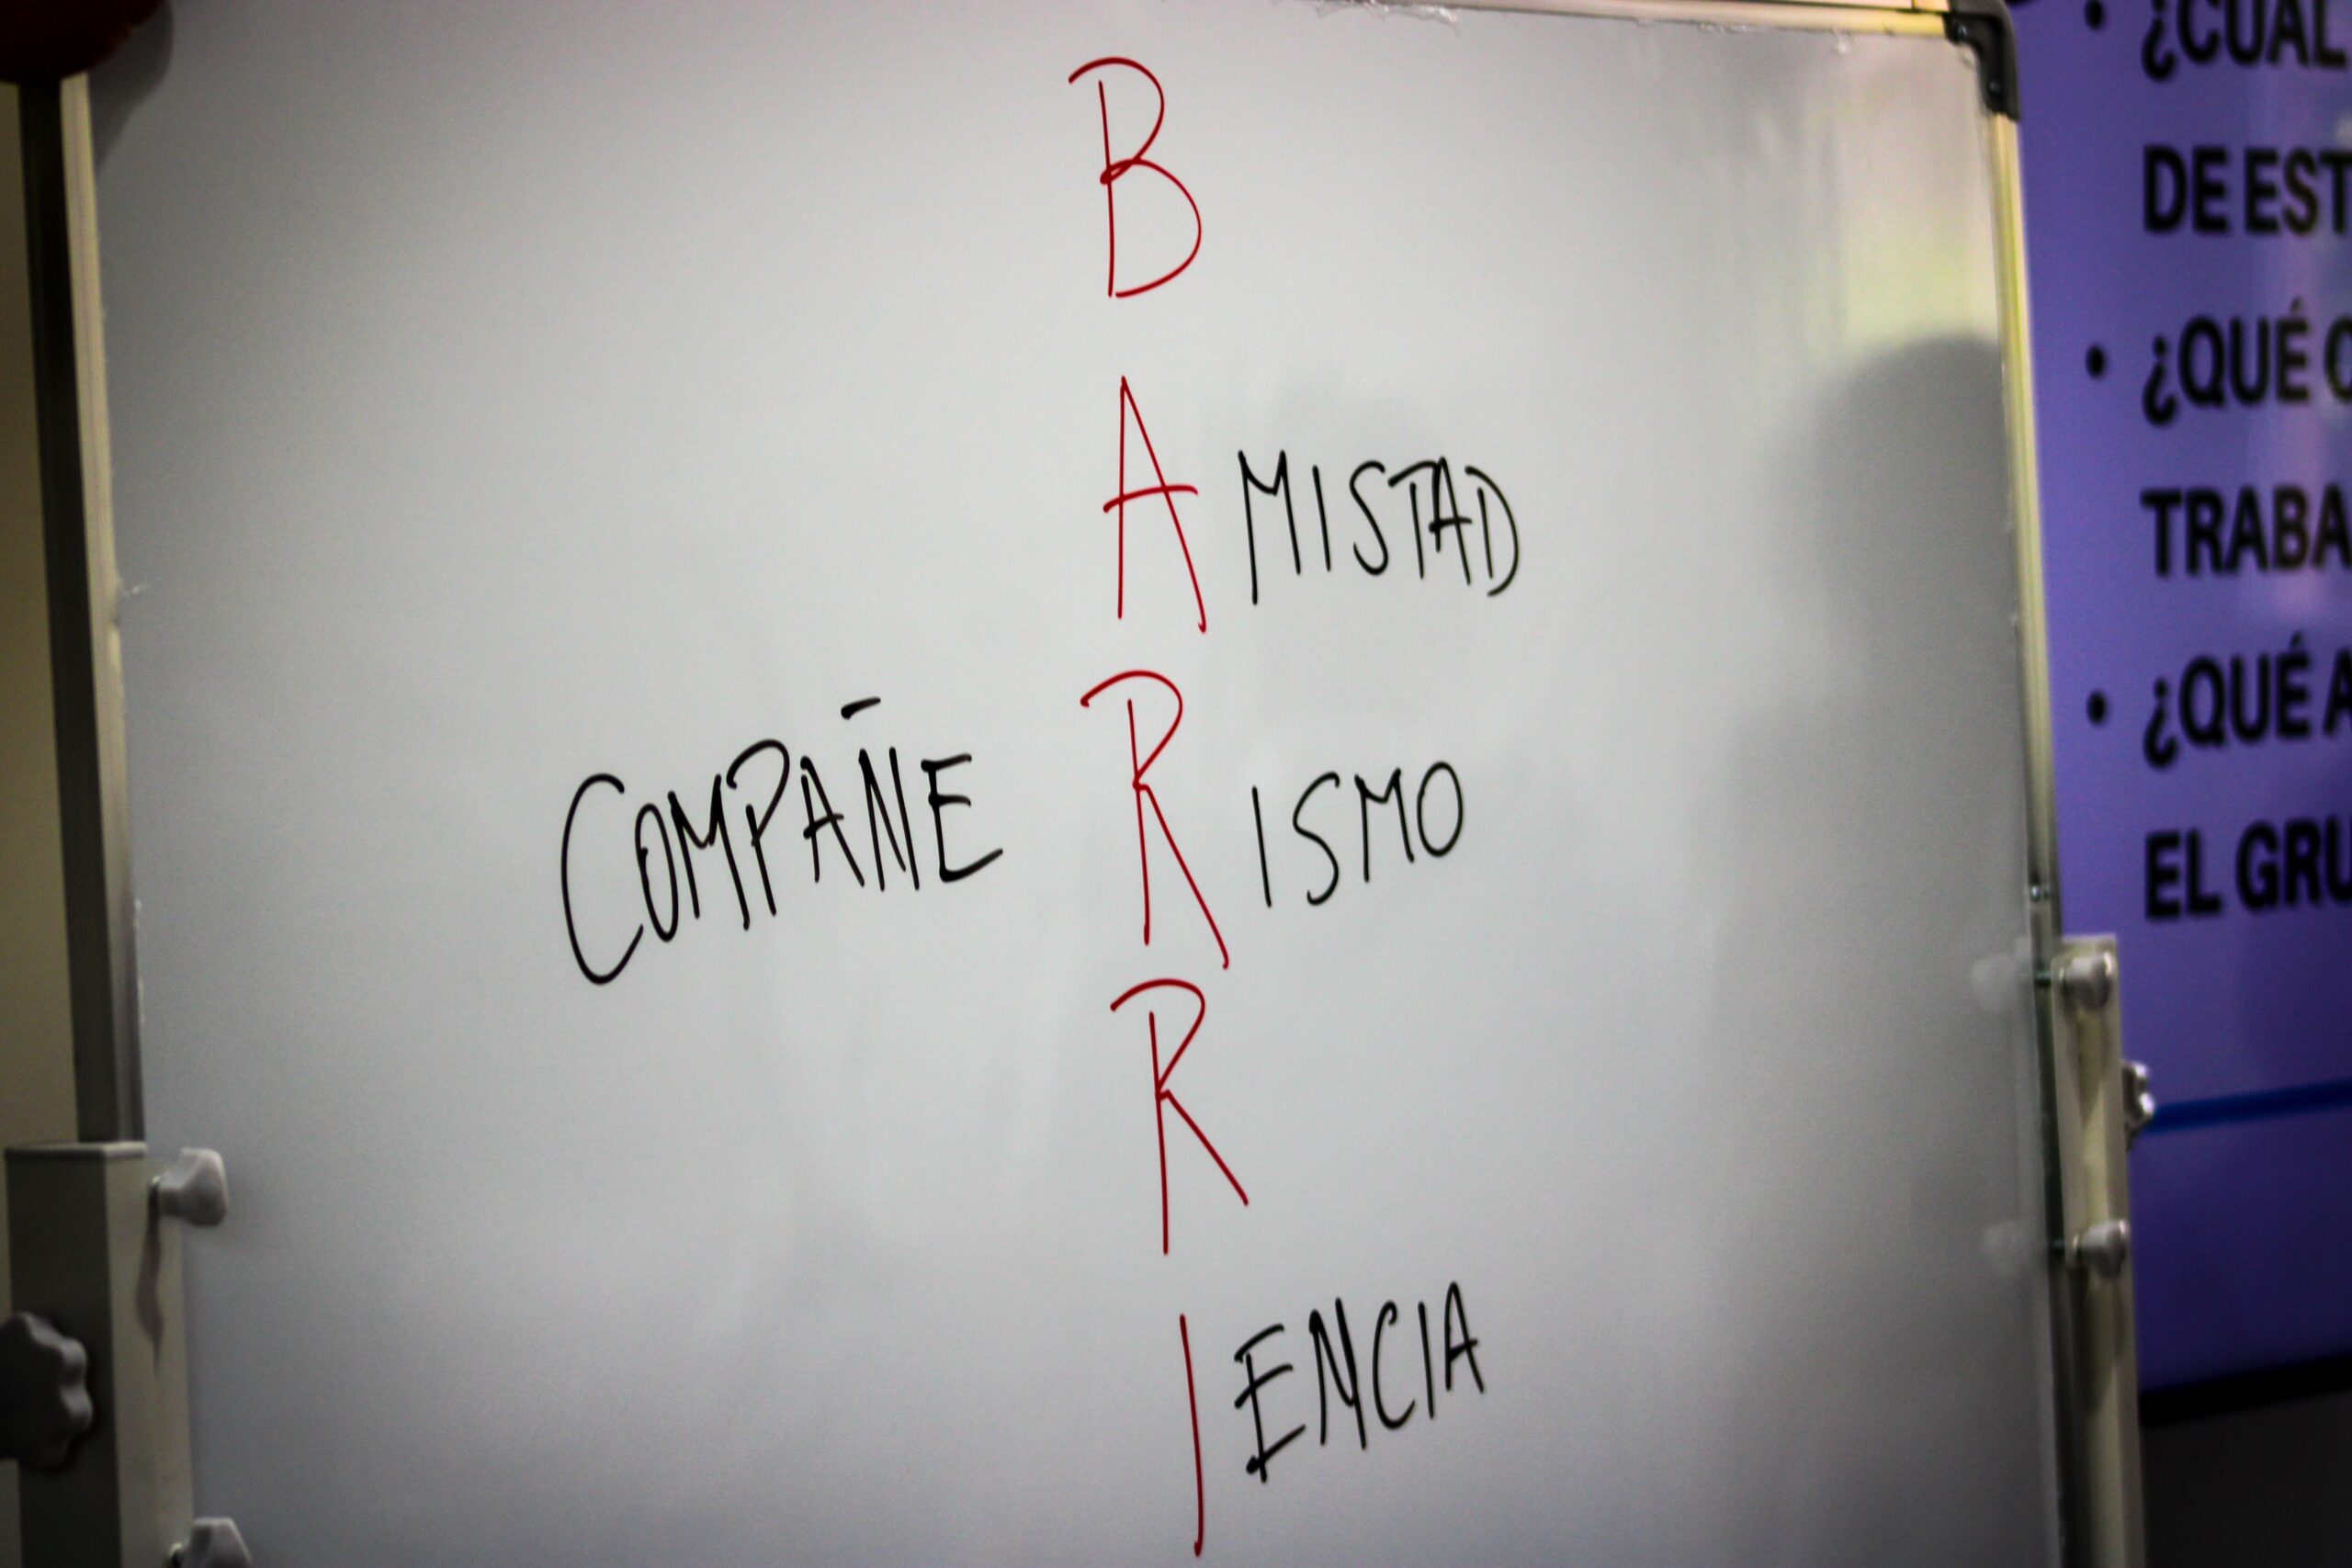 B
AMISTAD
COMPAÑERISMO
R
IENCIA
• ¿CUAL
DE EST
• ¿QUÉ
TRABA
• ¿QUÉ A
EL GRU